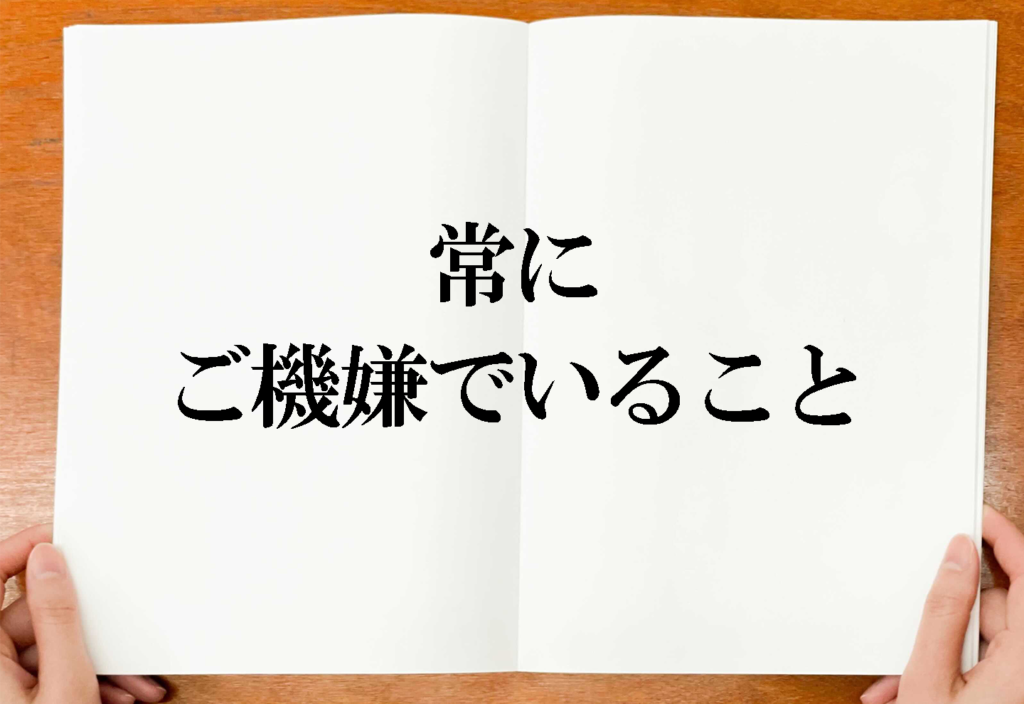 常に
ご機嫌でいること